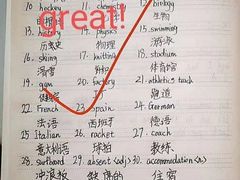 great!
10. hockey 11. chemistry 12. biology
生物
13. history 14. physics 15. swimming
历史 物理 游泳
16. skiing 17. knitting 18. stadium
滑雪 体育馆
19. gym 20. factory 21. athletics track
跑道
22. French 23. Spain 24. German
法语 西班牙 德语
25. Italian 26. racket 27. coach
意大利语 球拍 教练
28. surfboard 29. absent <adj> 30. accommodation <n>
冲浪板 缺席的 住宿